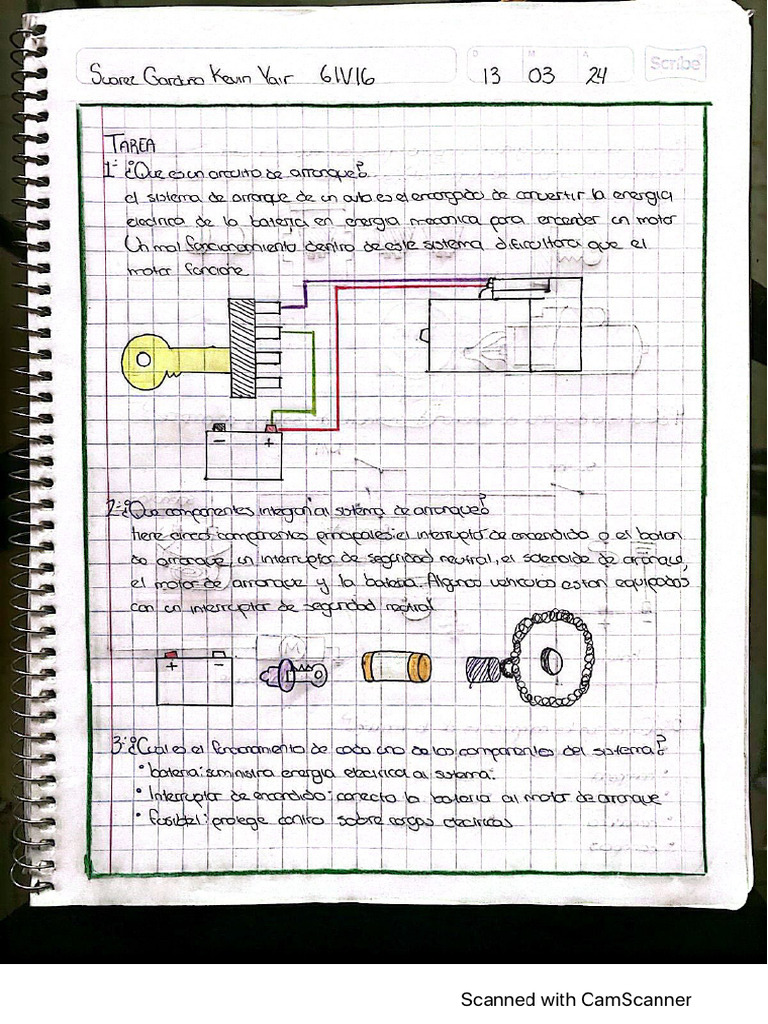 Suarez Garduño Kevin Yair 6IV16
D M A
13 03 24
Scribe
TAREA
1- ¿Que es un circuito de arranque?
el sistema de arranque de un auto es el encargado de convertir la energia
electrica de la bateria en energia mecanica para encender un motor
Un mal funcionamiento dentro de este sistema dificultara que el
motor funcione
- +
2- ¿Que componentes integran al sistema de arranque?
tiene cinco componentes principales: el interruptor de encendido o el boton
de arranque, un interruptor de seguridad neutral, el solenoide de arranque,
el motor de arranque y la bateria. Algunos vehiculos estan equipados
con un interruptor de seguridad neutral
+ -
3- ¿Cual es el funcionamiento de cada uno de los componentes del sistema?
• bateria: suministra energia electrica al sistema.
• Interruptor de encendido: conecta la bateria al motor de arranque
• fusible: protege contra sobre cargas electricas
Scanned with CamScanner